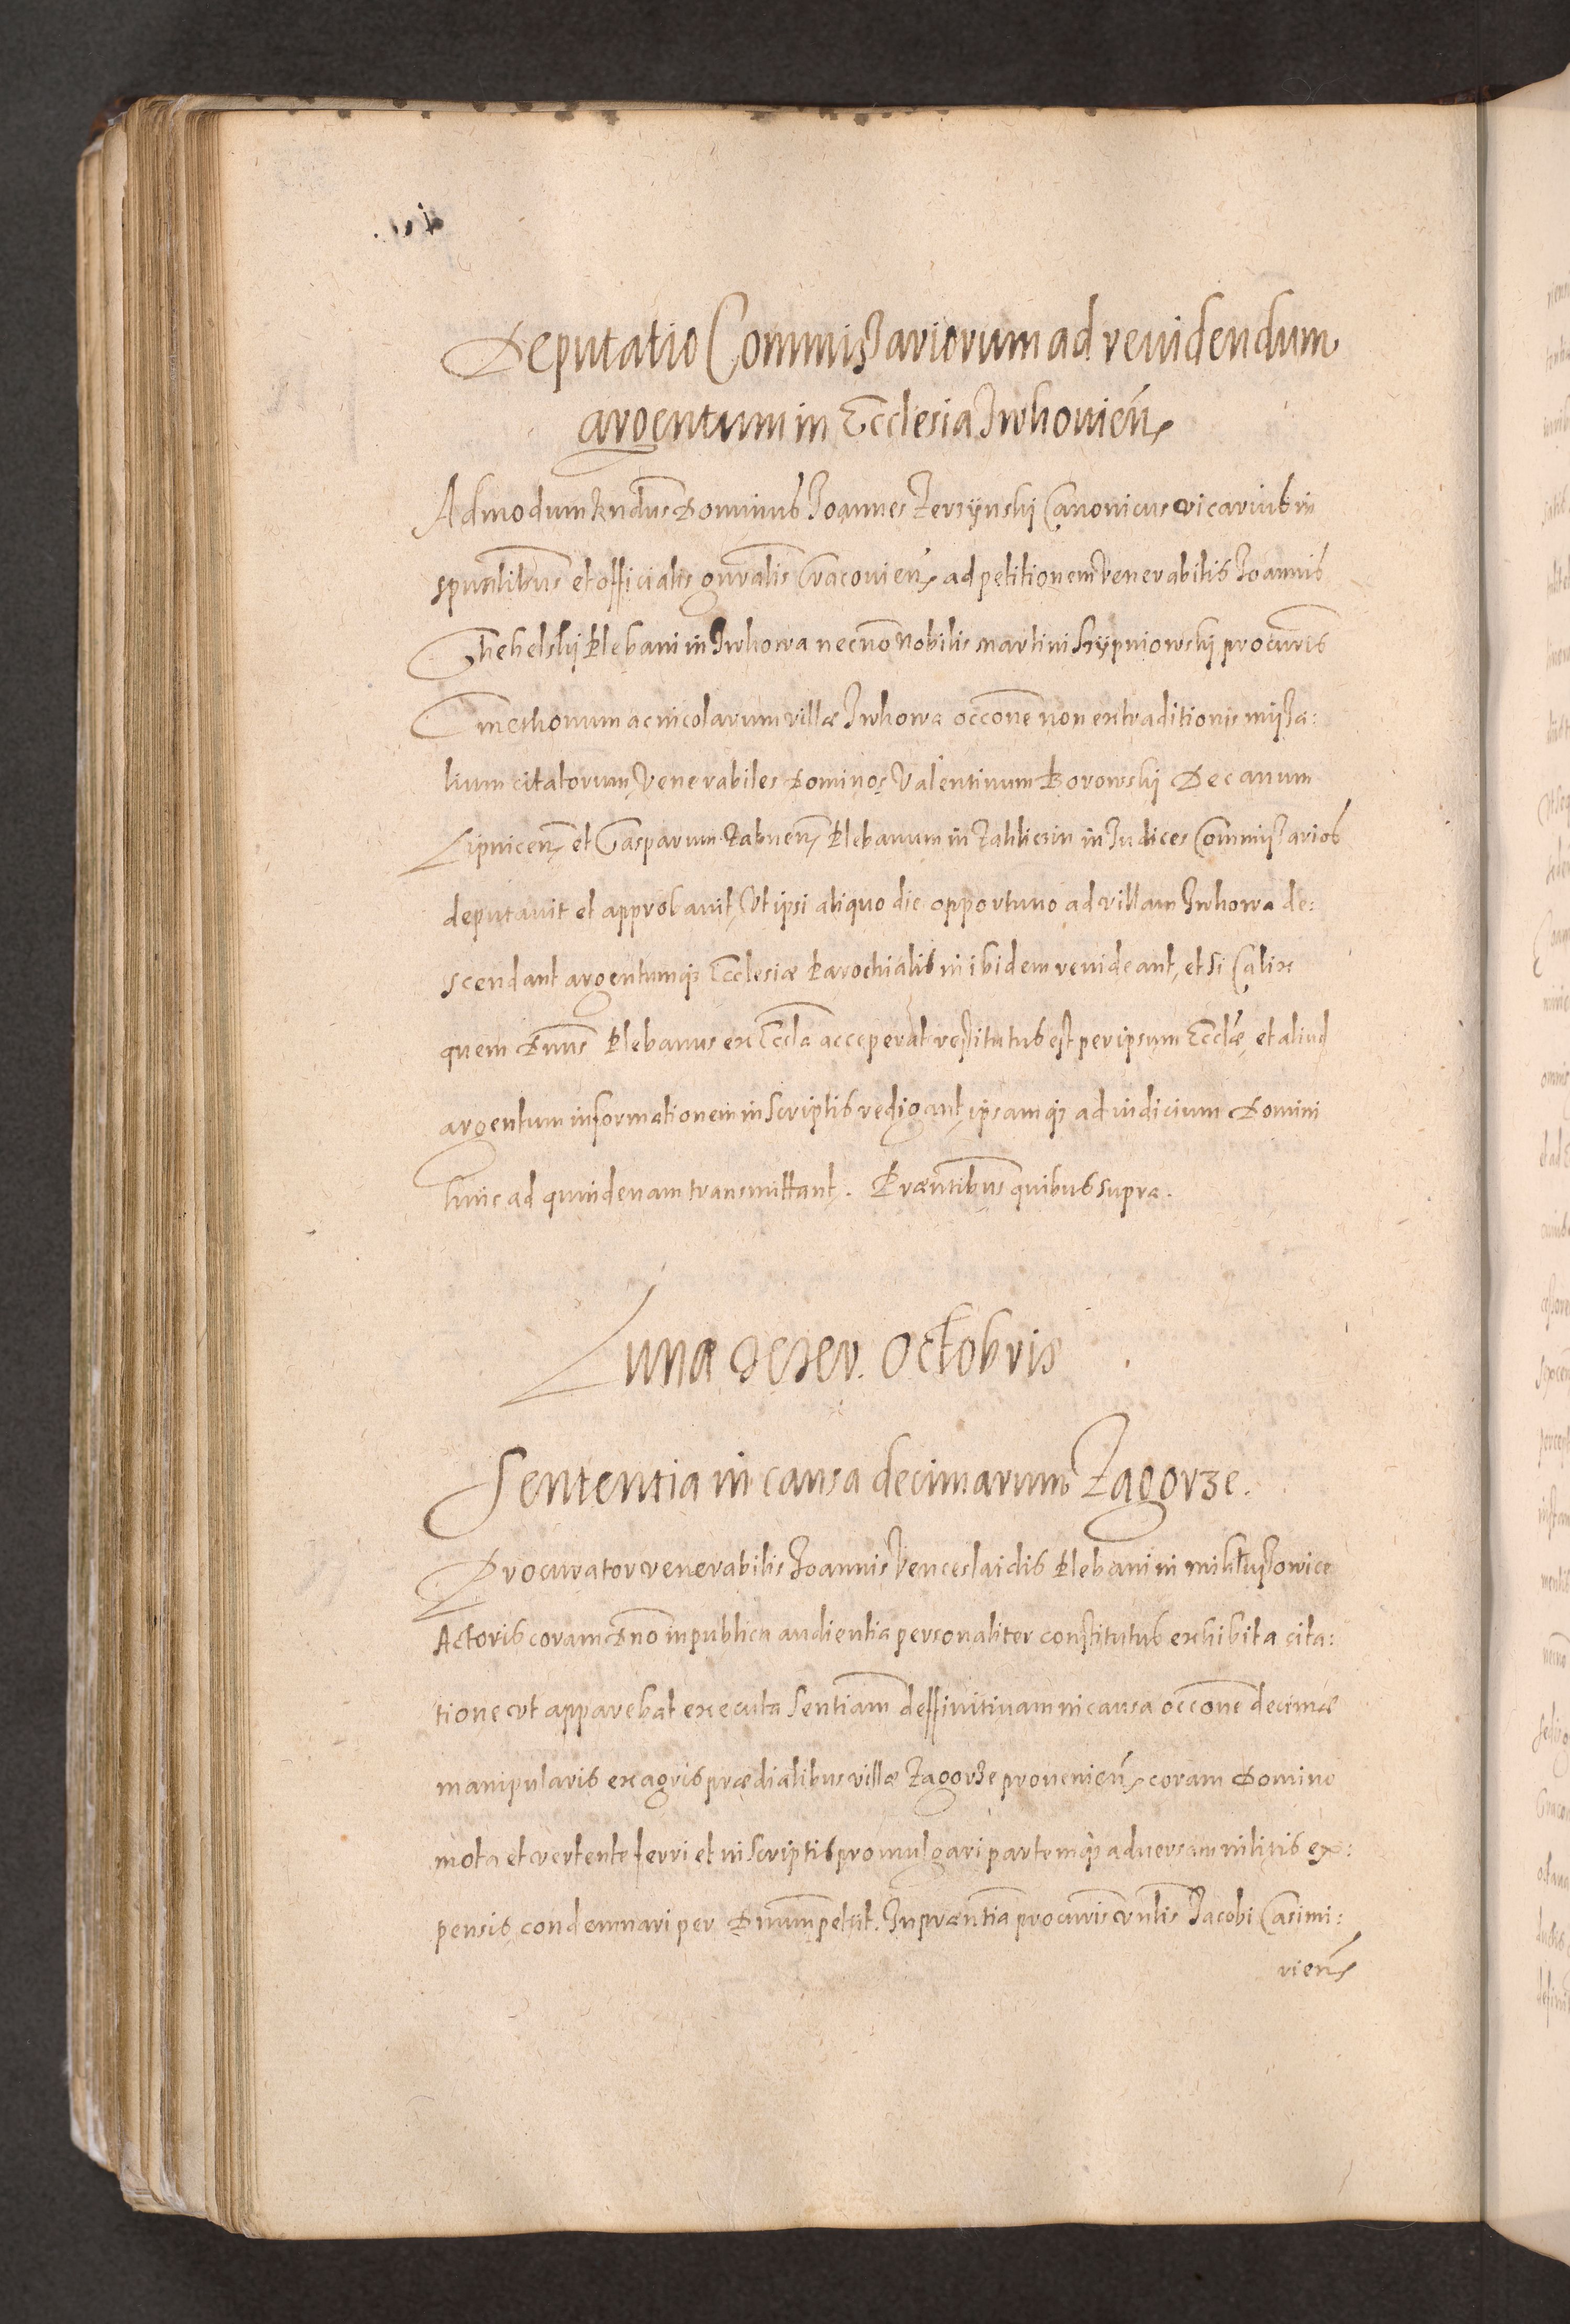 Deputatio Commissariorum ad reuidendum
argentum in Ecclesia Iwkouień
Admodum Rndus Dominus Ioannes Zerzÿnski Canonicus vicarius in
spūalibus et officialis gnralis Cracouień ad petitionem Venerabilis Ioannis
Chehelskj Plebani in Iwkowa necnō Nobilis Martini Szÿpniowskj procuris
Cmethonum ac incolarum villæ Iwkowa occōne non extraditionis missa:
lium citatorum, Venerabiles Dominos Valentinum Borowskj Decanum
Lipnicen et Gasparum Plebanum in in Iudices Commissarios
deputauit et approbauit, Vt ipsi aliquo die opportuno ad villam Iwkowa de:
scendant argentumq3 Ecclesiæ Parochialis in ibidem reuideant, et si Calix
quem Dnus Plebanus ex Eccla acceperat restitutus est per ipsum Ecclæ, et aliud
argentum informationem in scriptis redigant ipsamq3 ad iudicium Domini
huic ad quindenam transmittant. Præntibus quibus supra.
Lunæ Octobris
Sententia in causa decimarum Zagorze.
Procurator venerabilis Ioannis Venceslaidis Plebani in Mikłussowice
Actoris coram Dno in publica audientia personaliter constitutus exhibita cita:
tione vt apparebat executa Sentiam deffinitiuam in causa occōne decimæ
manipularis ex agris prædialibus villæ Zagorze prouenień coram Domino
mota et vertente ferri et in scriptis promulgari partemq3 aduersam in litis ex:
pensis condemnari per Dnum petiit. In præntia procuris vnlis Iacobi Casimi:
rieńs